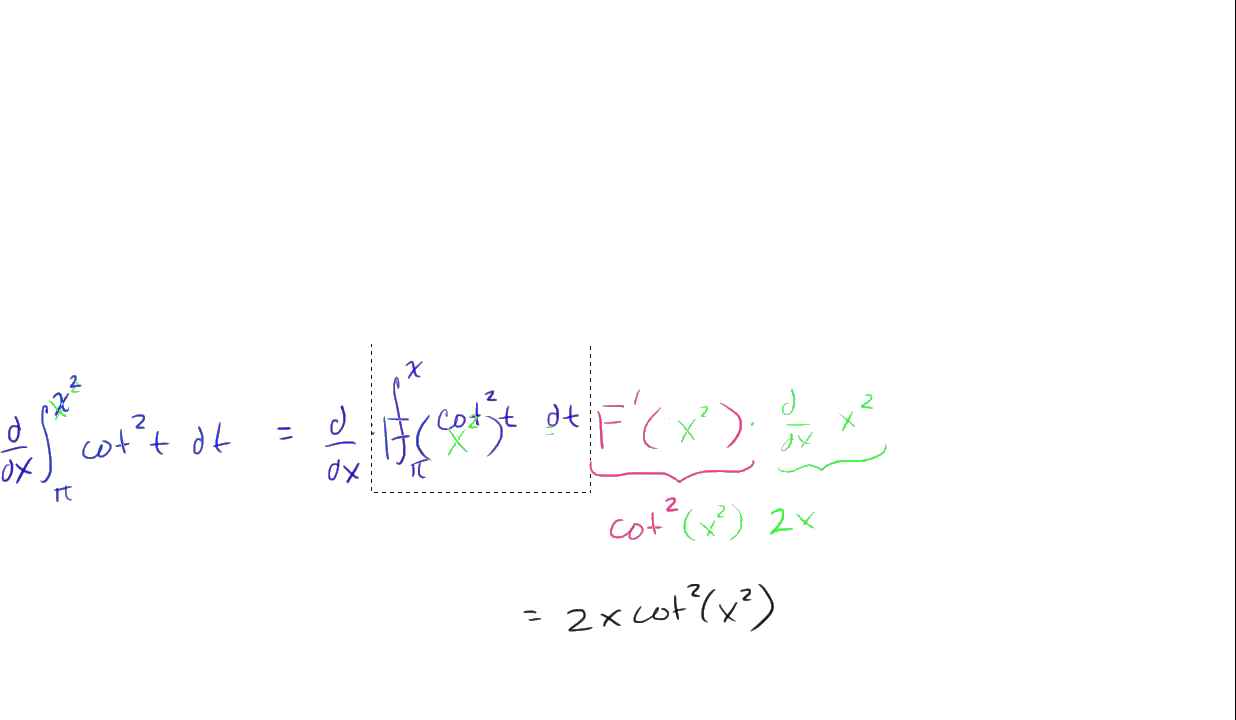 d/dx ∫_π^x² cot² t dt = d/dx F(x²) ∫_π^x cot² t dt F'(x²) · d/dx x²
cot²(x²) 2x
= 2x cot²(x²)